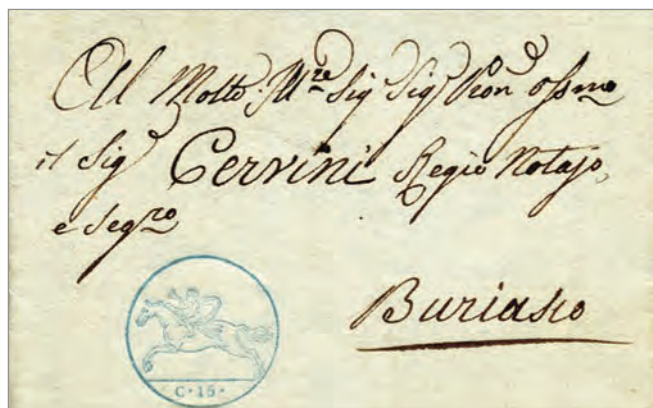 Al Molto Ill.re Sig Sig Pron Ossmo
il Sig Cervini Regio Notajo,
e Segro
Buriasco
C·15·